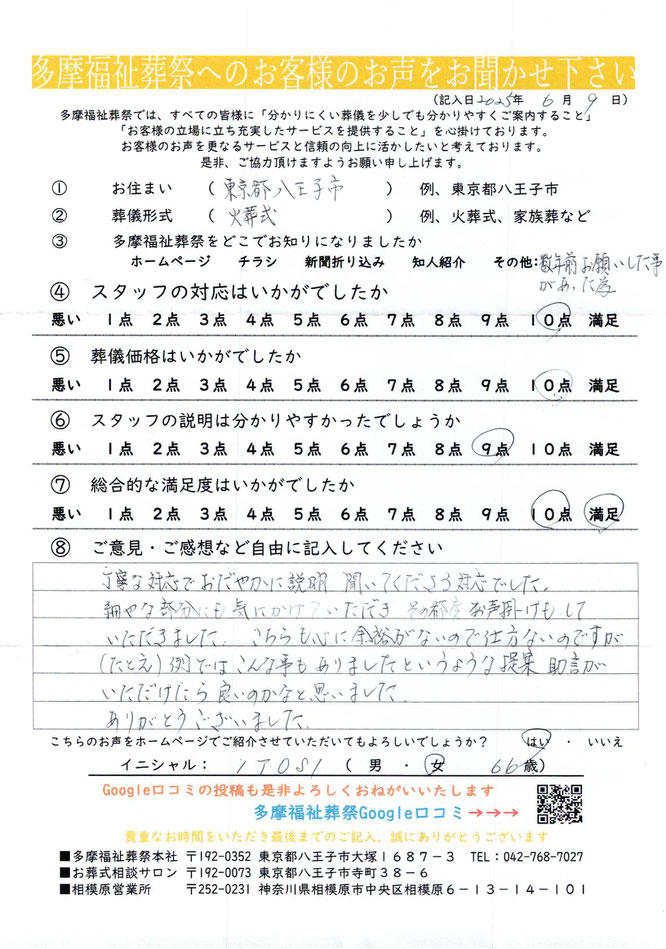 多摩福祉葬祭へのお客様のお声をお聞かせ下さい
（記入日2025年 6 月 9 日）
多摩福祉葬祭では、すべての皆様に「分かりにくい葬儀を少しでも分かりやすくご案内すること」
「お客様の立場に立ち充実したサービスを提供すること」を心掛けております。
お客様のお声を更なるサービスと信頼の向上に活かしたいと考えております。
是非、ご協力頂けますようお願い申し上げます。
① お住まい （ 東京都八王子市 ） 例、東京都八王子市
② 葬儀形式 （ 火葬式 ） 例、火葬式、家族葬など
③ 多摩福祉葬祭をどこでお知りになりましたか
ホームページ チラシ 新聞折り込み 知人紹介 その他：数年前お願いした事
があった為
④ スタッフの対応はいかがでしたか
悪い １点 ２点 ３点 ４点 ５点 ６点 ７点 ８点 ９点 １０点 満足
⑤ 葬儀価格はいかがでしたか
悪い １点 ２点 ３点 ４点 ５点 ６点 ７点 ８点 ９点 １０点 満足
⑥ スタッフの説明は分かりやすかったでしょうか
悪い １点 ２点 ３点 ４点 ５点 ６点 ７点 ８点 ９点 １０点 満足
⑦ 総合的な満足度はいかがでしたか
悪い １点 ２点 ３点 ４点 ５点 ６点 ７点 ８点 ９点 １０点 満足
⑧ ご意見・ご感想など自由に記入してください
丁寧な対応でおだやかに説明 聞いてくださる対応でした。
細やな部分にも気にかけていただき その都度お声掛けもして
いただきました。こちらも心に余裕がないので仕方ないのですが
（たとえ）例ではこんな事もありましたというような提案 助言が
いただけたら良いのかなと思いました。
ありがとうございました。
こちらのお声をホームページでご紹介させていただいてもよろしいでしょうか？ はい ・ いいえ
イニシャル： （ 男 ・ 女 66歳）
Google口コミの投稿も是非よろしくおねがいいたします
多摩福祉葬祭Google口コミ→→→
貴重なお時間をいただき最後までのご記入、誠にありがとうございます
■多摩福祉葬祭本社 〒192-0352 東京都八王子市大塚１６８７－３ TEL：042-768-7027
■お葬式相談サロン 〒192-0073 東京都八王子市寺町３８－６
■相模原営業所 〒252-0231 神奈川県相模原市中央区相模原６－１３－１４－１０１